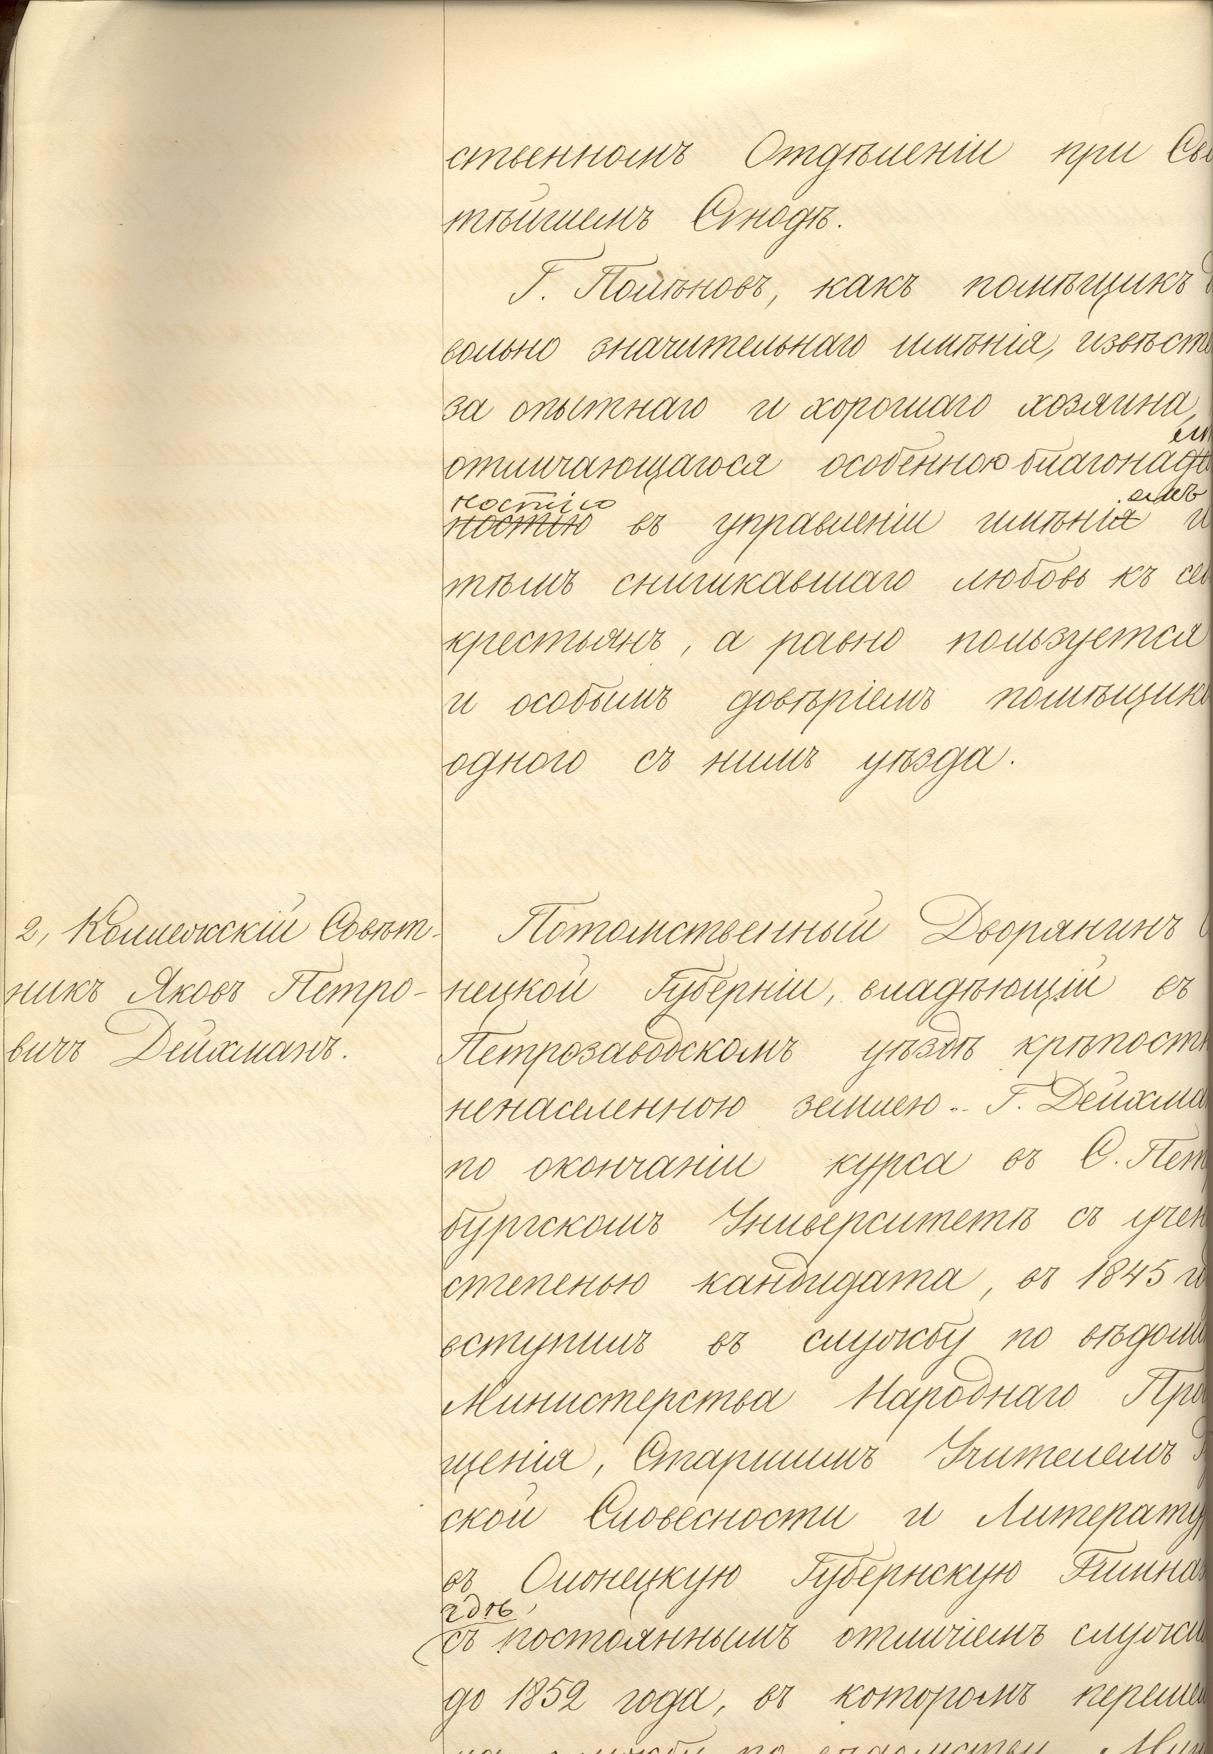 ственномъ Отдѣленіи при Свя
тѣйшемъ Сѵнодѣ.
Г. Полѣновъ, какъ помѣщикъ
вольно значительнаго имѣнія, извѣст
за опытнаго и хорошаго хозяина,
отличающагося особенною благонад
ностію
ностію въ управленіи имѣнія и
емъ
тѣмъ снискавшаго любовь къ себ
крестьянъ, а равно пользуется
и особымъ довѣріемъ помѣщико
одного съ нимъ уѣзда.
2, Коллежскій Совѣт-
никъ Яковъ Петро-
вичъ Дейхманъ.
Потомственный Дворянинъ О
нецкой Губерніи, владѣющій въ
Петрозаводскомъ уѣздѣ крѣпостн
ненаселенною землею. Г. Дейхма
по окончаніи курса въ С. Пет
бургскомъ Университетѣ съ учен
степенью кандидата, въ 1845 г
вступилъ въ службу по вѣдом
Министерства Народнаго Про
щенія, Старшимъ Учителемъ
ской Словесности и Литерату
въ Олонецкую Губернскую Гимна
гдѣ,
съ постояннымъ отличіемъ служи
до 1852 года, въ которомъ переше
на службу по вѣдомству Мин